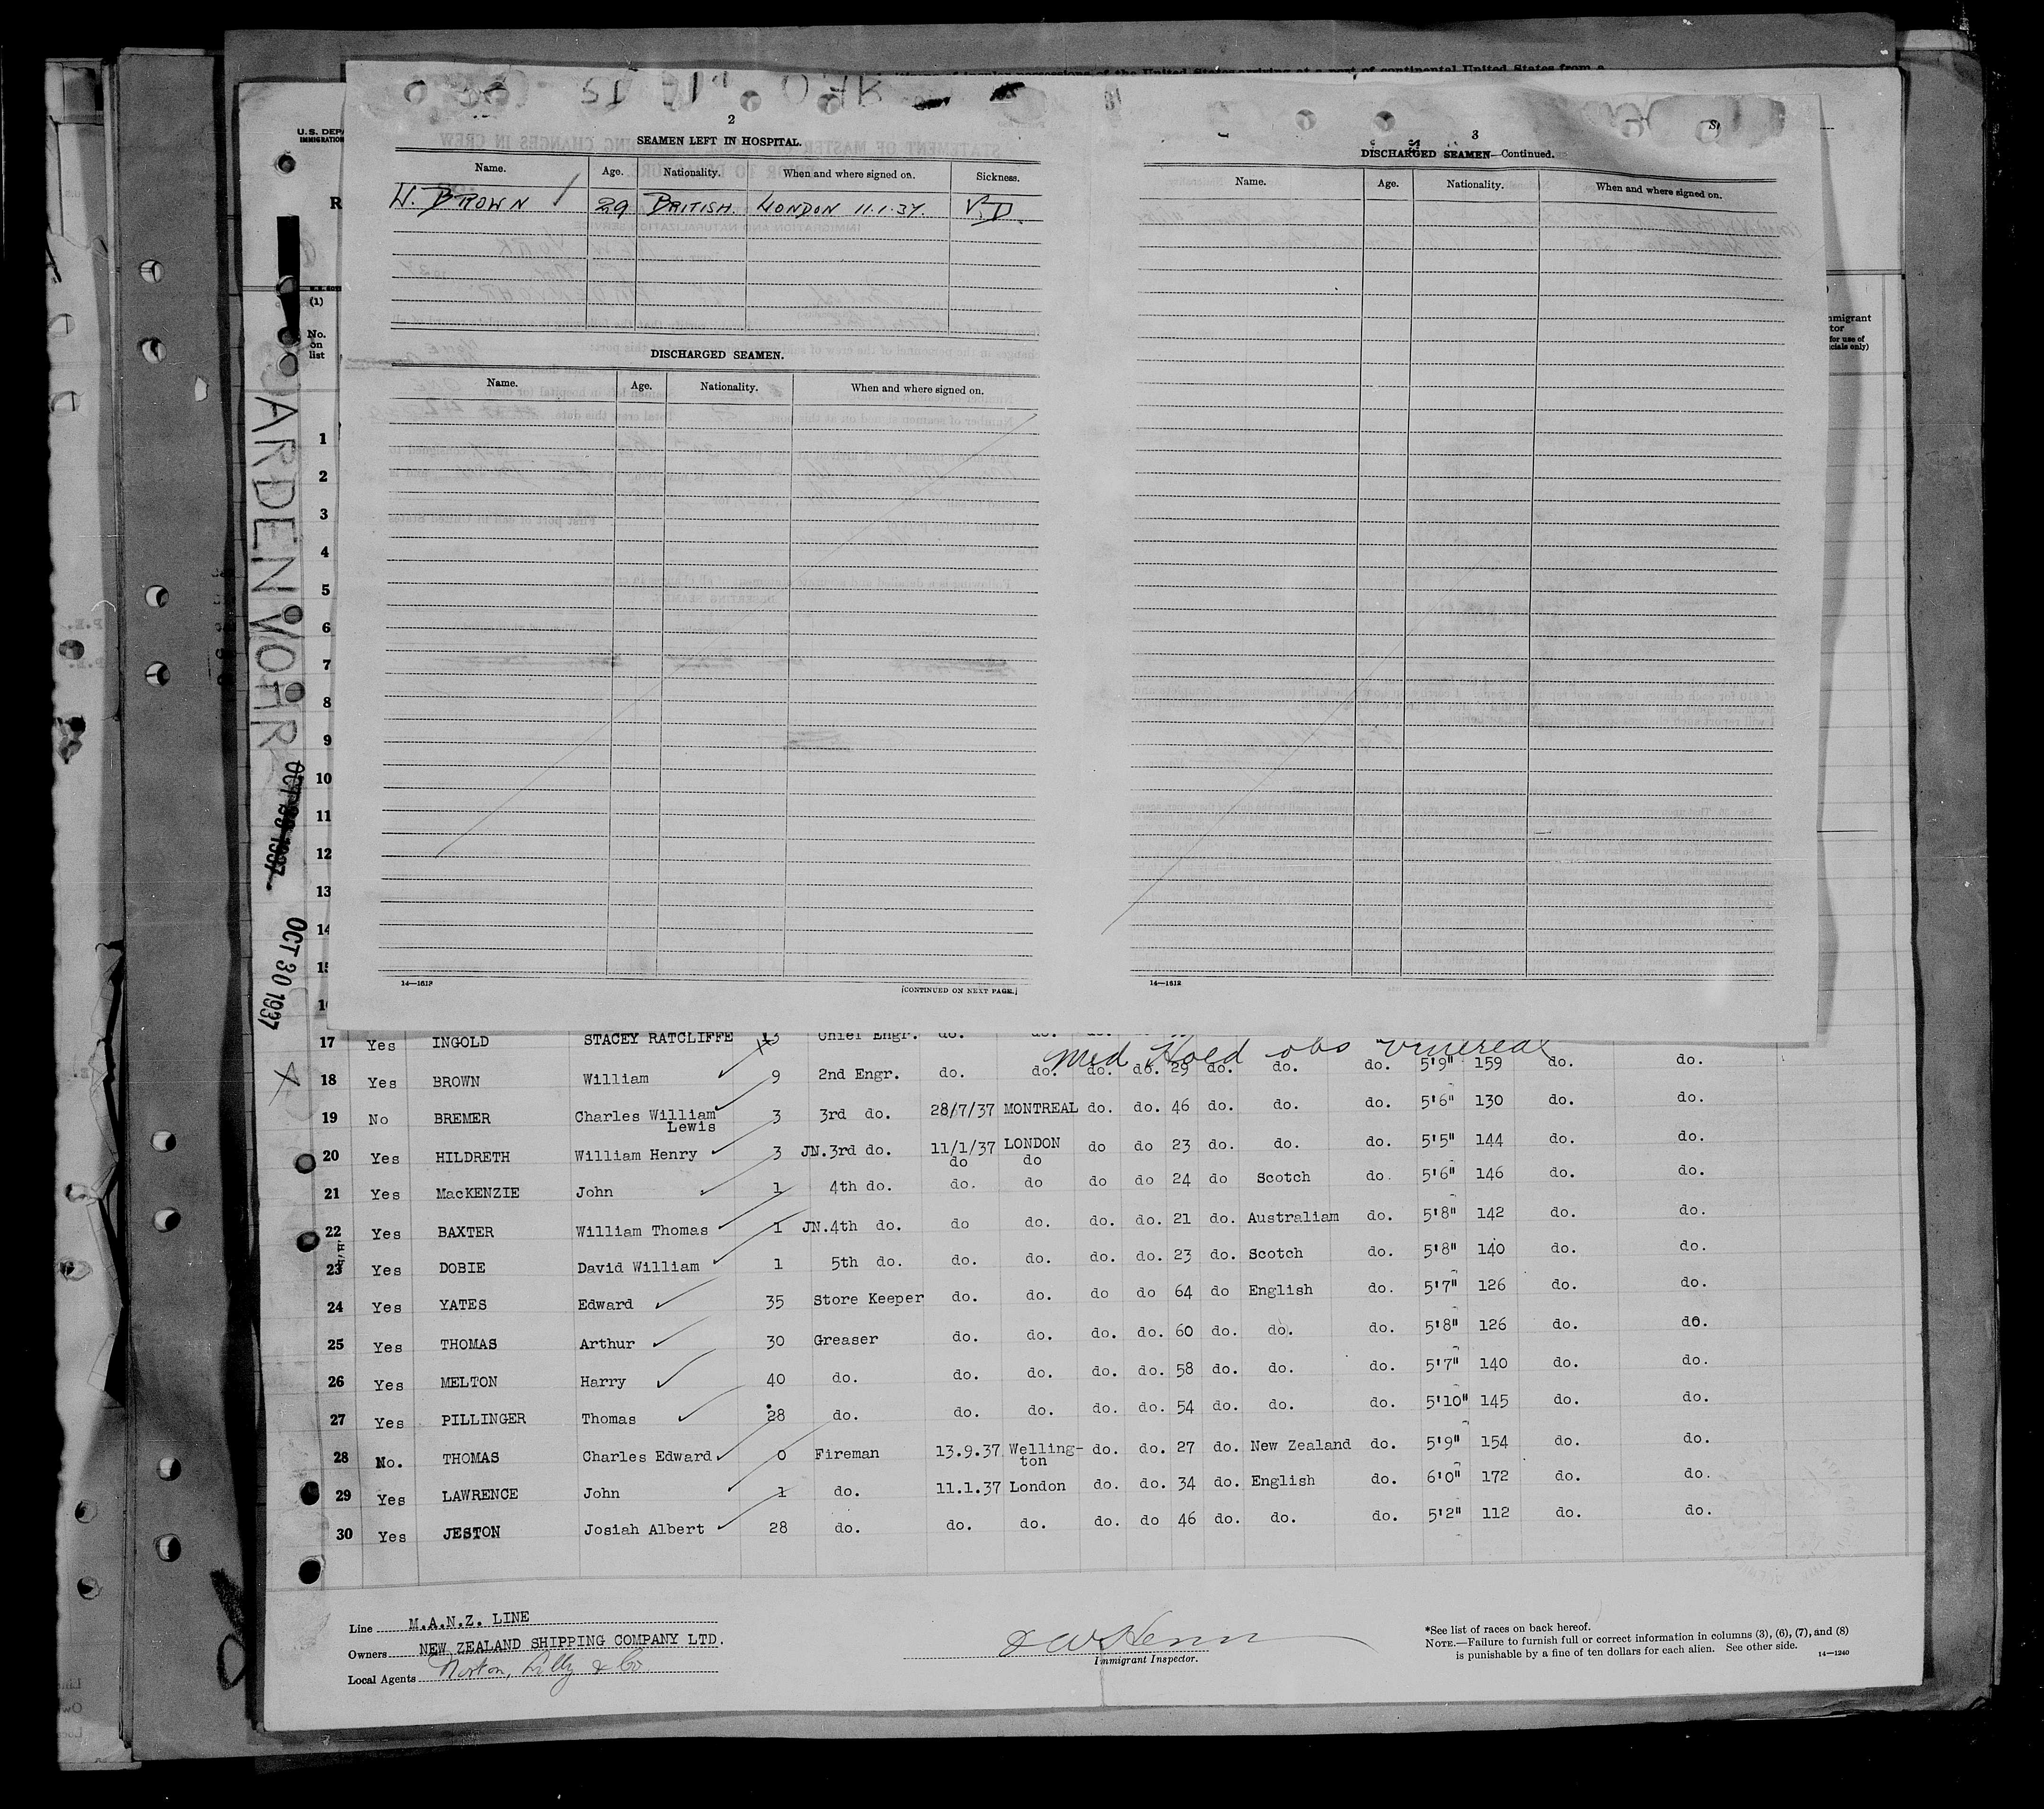 2
SEAMEN LEFT IN HOSPITAL.
Name. Age. Nationality. When and where signed on. Sickness.
W. BROWN 29 BRITISH. LONDON 11.1.37. V.D.
DISCHARGED SEAMEN.
Name. Age. Nationality. When and where signed on.
14—1612
[CONTINUED ON NEXT PAGE.]
3
DISCHARGED SEAMEN—Continued.
Name. Age. Nationality. When and where signed on.
14—1612
U.S. DEPA
IMMIGRATION
R
(1)
No.
on
list
mmigrant
tor
for use of
icials only)
ARDENVOHR
OCT 30 1937
1
2
3
4
5
6
7
8
9
10
11
12
13
14
15
16
17 Yes INGOLD STACEY RATCLIFFE 13 Chief Engr. do. do. do.
Med Hold obs venereal
18 Yes BROWN William 9 2nd Engr. do. do. do. do. 29 do. do. do. 5'9" 159 do. do.
19 No BREMER Charles William Lewis 3 3rd do. 28/7/37 MONTREAL do. do. 46 do. do. do. 5'6" 130 do. do.
20 Yes HILDRETH William Henry 3 JN.3rd do. 11/1/37 LONDON do do 23 do. do. do. 5'5" 144 do. do.
do do
21 Yes MacKENZIE John 1 4th do. do. do do do 24 do Scotch do. 5'6" 146 do. do.
22 Yes BAXTER William Thomas 1 JN.4th do. do do. do. do. 21 do. Australiam do. 5'8" 142 do. do.
23 Yes DOBIE David William 1 5th do. do. do. do. do. 23 do. Scotch do. 5'8" 140 do. do.
24 Yes YATES Edward 35 Store Keeper do. do. do do 64 do English do. 5'7" 126 do. do.
25 Yes THOMAS Arthur 30 Greaser do. do. do. do. 60 do. do. do. 5'8" 126 do. do.
26 Yes MELTON Harry 40 do. do. do. do. do. 58 do. do. do. 5'7" 140 do. do.
27 Yes PILLINGER Thomas 28 do. do. do. do. do. 54 do. do. do. 5'10" 145 do. do.
28 No. THOMAS Charles Edward 0 Fireman 13.9.37 Welling-ton do. do. 27 do. New Zealand do. 5'9" 154 do. do.
29 Yes LAWRENCE John 1 do. 11.1.37 London do. do. 34 do. English do. 6'0" 172 do. do.
30 Yes JESTON Josiah Albert 28 do. do. do. do. do 46 do. do. do. 5'2" 112 do. do.
Line M.A.N.Z. LINE
Owners NEW ZEALAND SHIPPING COMPANY LTD.
Local Agents Norton, Lilly & Co.
Immigrant Inspector.
*See list of races on back hereof.
NOTE.—Failure to furnish full or correct information in columns (3), (6), (7), and (8)
is punishable by a fine of ten dollars for each alien. See other side.
14—1240